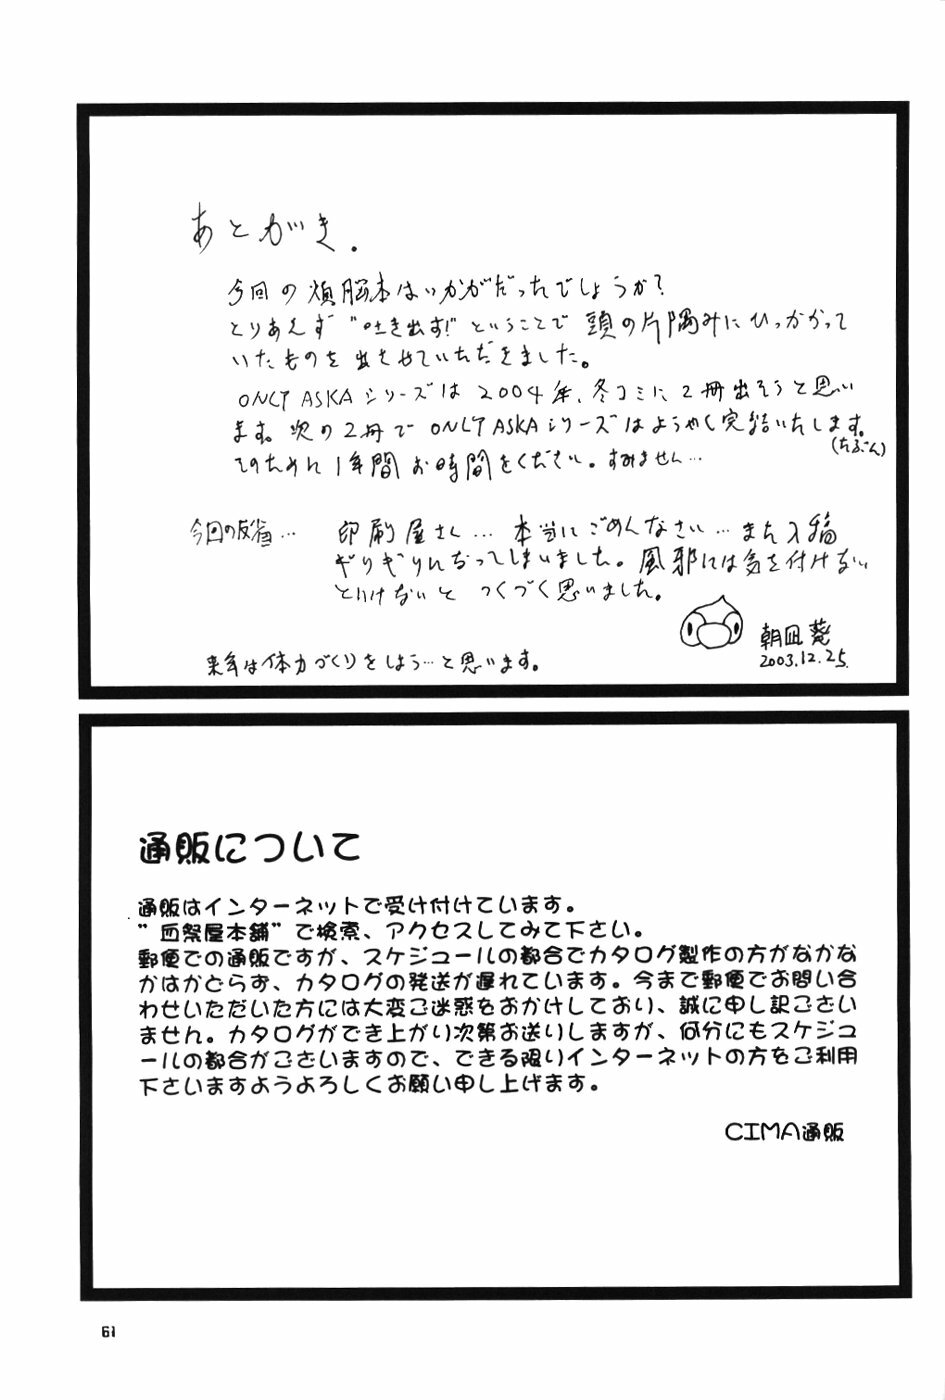 あとがき.
今回の煩脳本はいかがだったでしょうか?
とりあえず"吐き出す!"ということで 頭の片隅みにひっかかって
いたものを出させていただきました。
ONLY ASKAシリーズは2004年、冬コミに2冊出そうと思い
ます。次の2冊でONLY ASKAシリーズはようやく完結いたします。
(たぶん)
そのために1年間お時間をください。すみません…
今回の反省… 印刷屋さん…本当にごめんなさい…また入稿
ギリギリになってしまいました。風邪には気を付けない
といけないと つくづく思いました。
朝凪葵
2003.12.25.
来年は体力づくりをしよう…と思います。
通販について
通販はインターネットで受け付けています。
"血祭屋本舗"で検索、アクセスしてみて下さい。
郵便での通販ですが、スケジュールの都合でカタログ製作の方がなかな
かはかどらず、カタログの発送が遅れています。今まで郵便でお問い合
わせいただいた方には大変ご迷惑をおかけしており、誠に申し訳ござい
ません。カタログができ上がり次第お送りしますが、何分にもスケジュ
ールの都合がございますので、できる限りインターネットの方をご利用
下さいますようよろしくお願い申し上げます。
CIMA通販
61